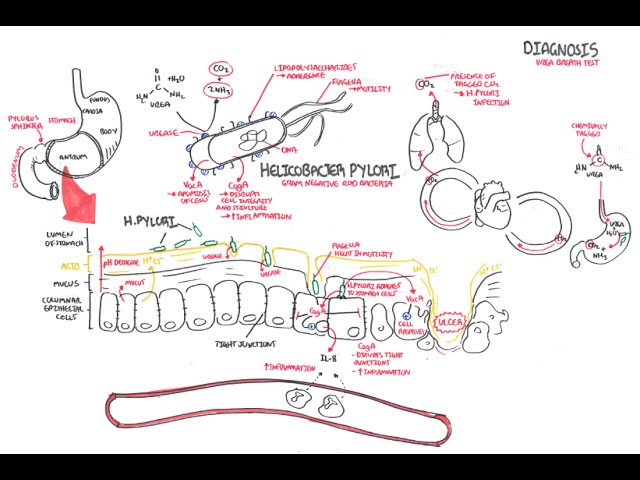 DIAGNOSIS
UREA BREATH TEST
CO2
+
2NH3
O
+H2O
H2N NH2
UREA
LIPOPOLYSACCHARIDES
→ ADHERENCE
FLAGELLA
→ MOTILITY
UREASE
DNA
HELICOBACTER PYLORI
GRAM NEGATIVE ROD BACTERIA
VacA
→ APOPTOSIS
OF CELLS
CagA
→ DISRUPTS
CELL INTEGRITY
AND STRUCTURE
→ ↑ INFLAMMATION
PYLORUS
SPHINTER
STOMACH
FUNDUS
CARDIA
BODY
ANTRUM
DUODENUM
CO2
PRESENCE OF
TAGGED CO2
→ H.PYLORI
INFECTION
CO2
CO2
CHEMICALLY
TAGGED
O
C
H2N NH2
UREA
UREA
+
H2O
CO2 +
NH3
H.PYLORI
LUMEN
OF STOMACH
ACID
MUCUS
COLUMNAR
EPITHELIAL
CELLS
pH DECREASE
H+ Cl-
MUCUS
UREASE
UREASE
FLAGELLA
HELP IN MOTILITY
H.PYLORI ADHERES
TO STOMACH CELLS
CagA
VacA
CELL
APOPTOSIS
H+ Cl-
H+ Cl-
ULCER
TIGHT JUNCTIONS
IL-8
↑ INFLAMMATION
CagA
- DISRUPTS TIGHT
JUNCTIONS
- ↑ INFLAMMATION